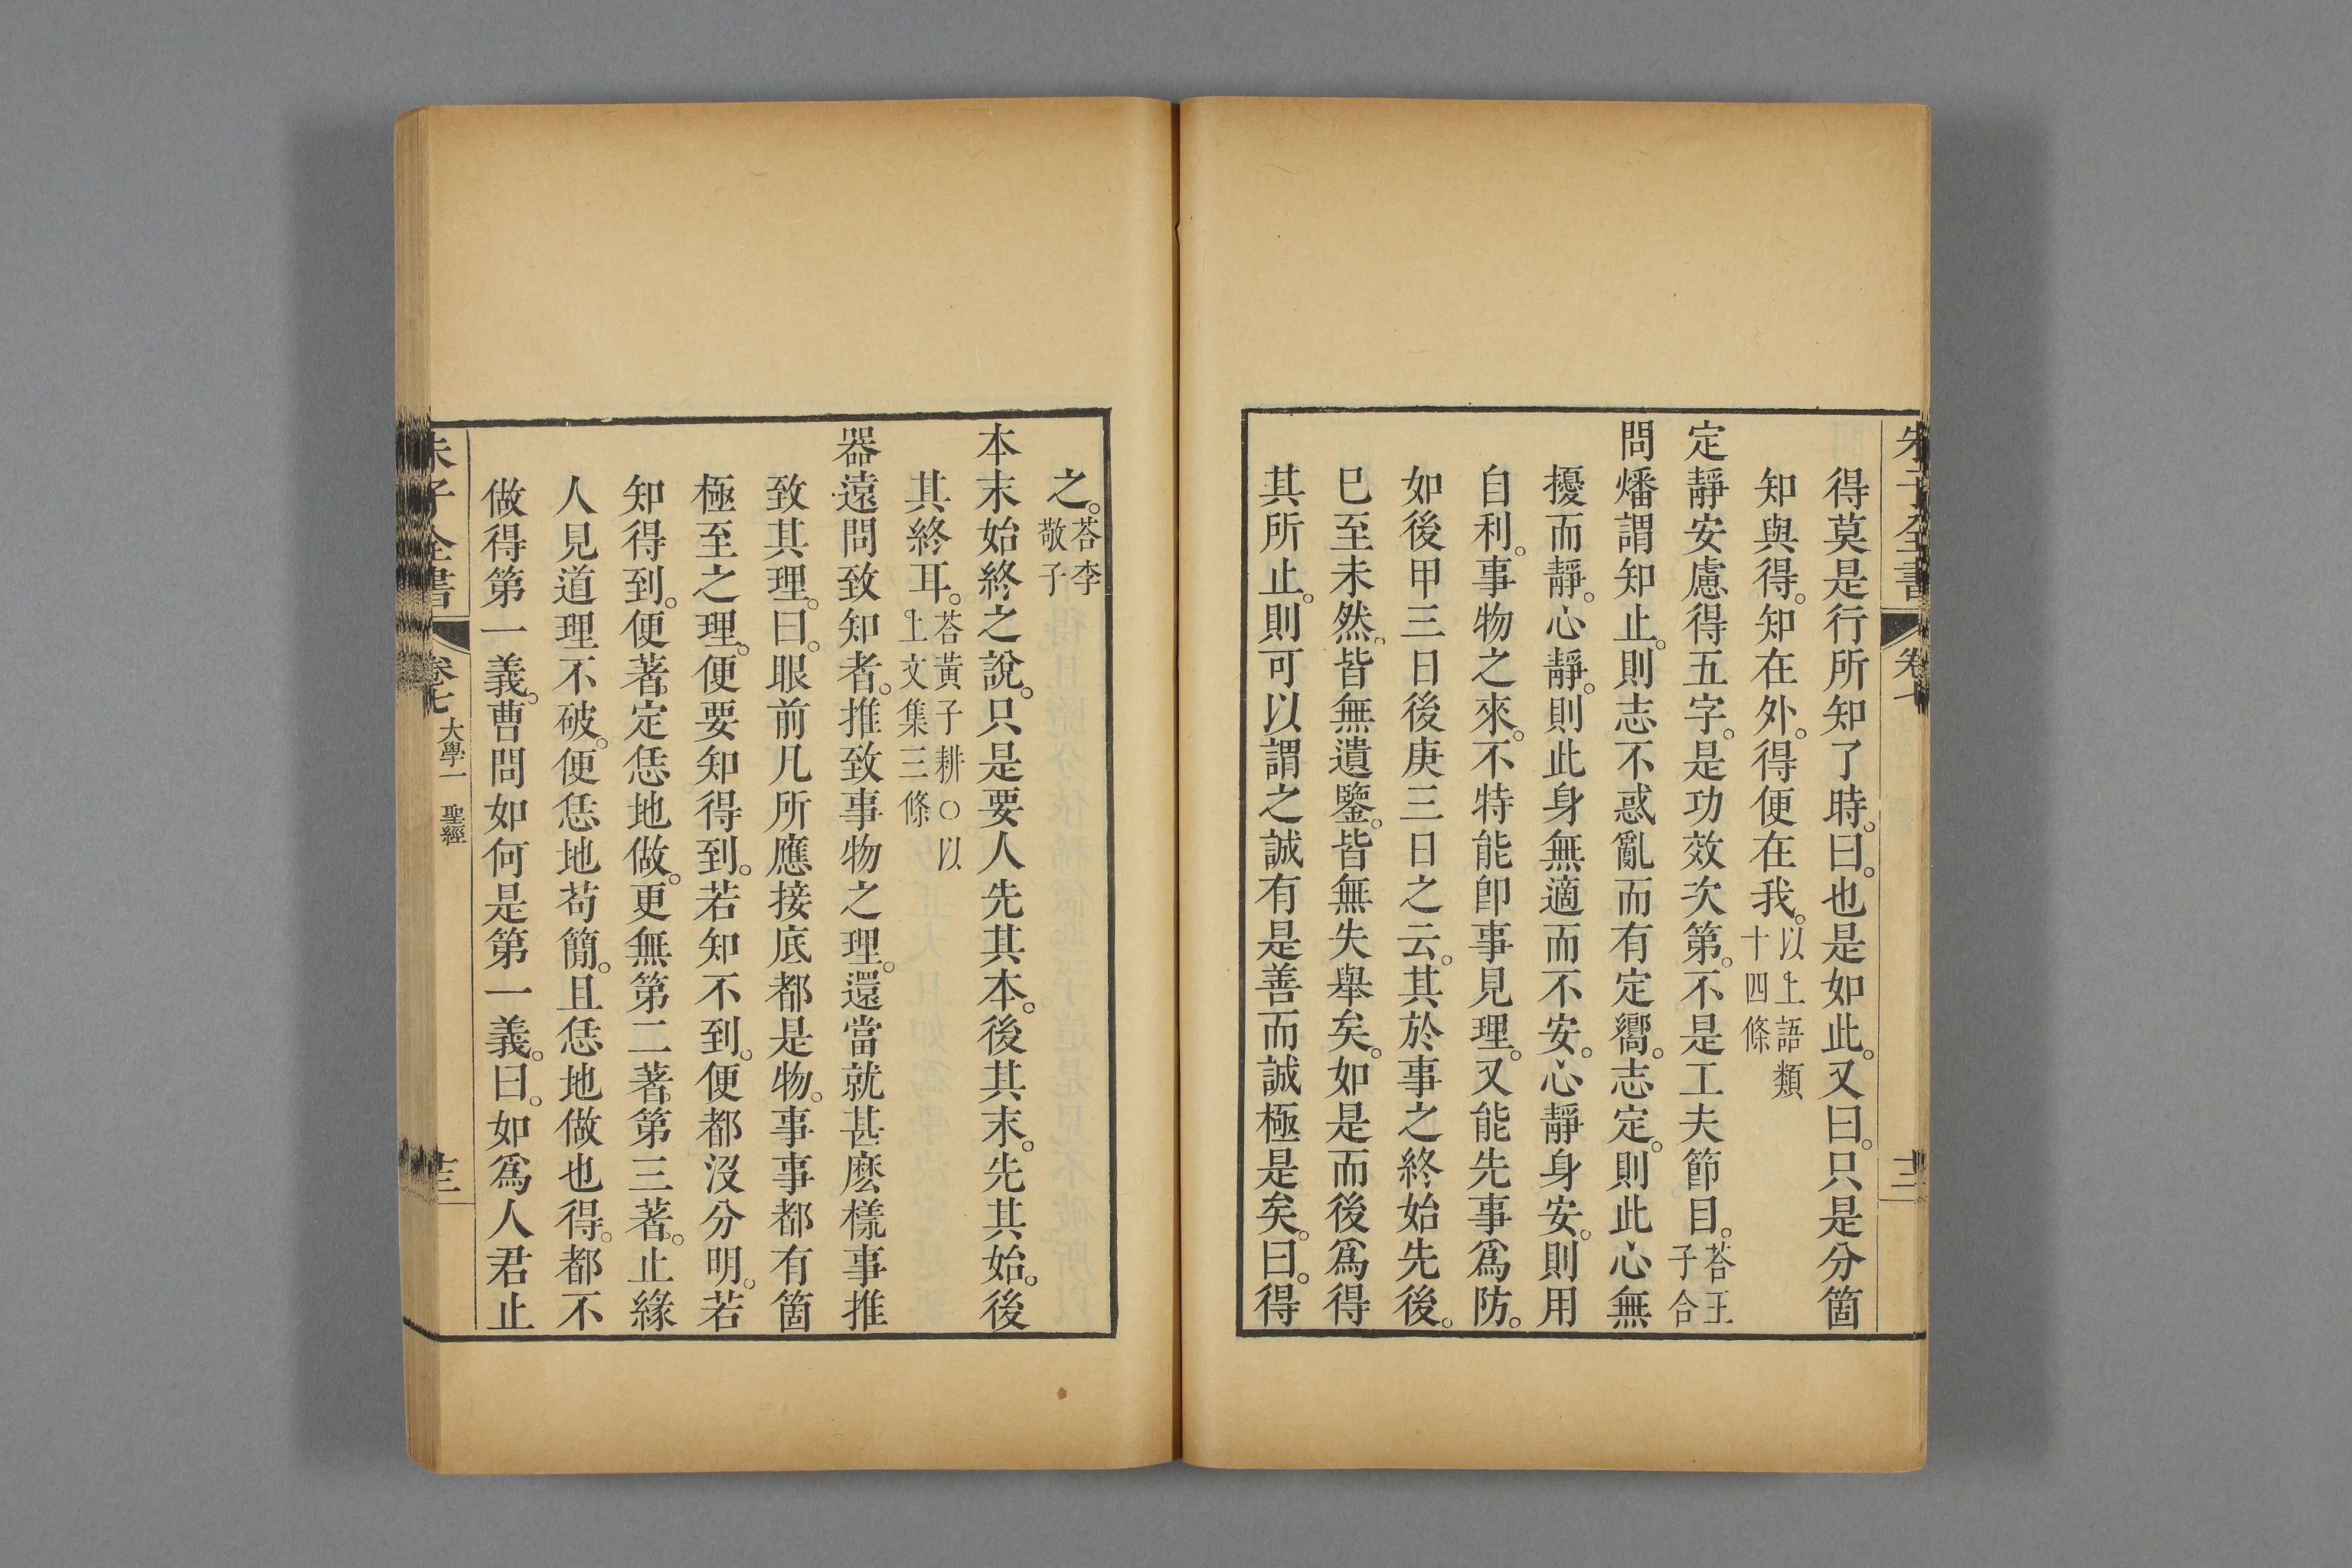 朱子全書 卷七
得莫是行所知了時。曰。也是如此。又曰。只是分箇
知與得。知在外。得便在我。以上語類十四條
定靜安慮得五字。是功效次第。不是工夫節目。荅王子合
問燔謂知止。則志不惑亂而有定嚮。志定。則此心無
擾而靜。心靜。則此身無適而不安。心靜身安。則用
自利。事物之來。不特能卽事見理。又能先事爲防。
如後甲三日後庚三日之云。其於事之終始先後。
已至未然。皆無遺鑒。皆無失舉矣。如是而後爲得
其所止。則可以謂之誠有是善而誠極是矣。曰。得
之。荅李敬子
本末始終之說。只是要人先其本。後其末。先其始。後
其終耳。荅黃子耕○以上文集三條
器遠問致知者。推致事物之理。還當就甚麽樣事推
致其理。曰。眼前凡所應接底都是物。事事都有箇
極至之理。便要知得到。若知不到。便都沒分明。若
知得到。便著定恁地做。更無第二著。第三著。止緣
人見道理不破。便恁地苟簡。且恁地做也得。都不
做得第一義。曹問如何是第一義。曰。如爲人君止
朱子全書 卷七 大學一 聖經 十三